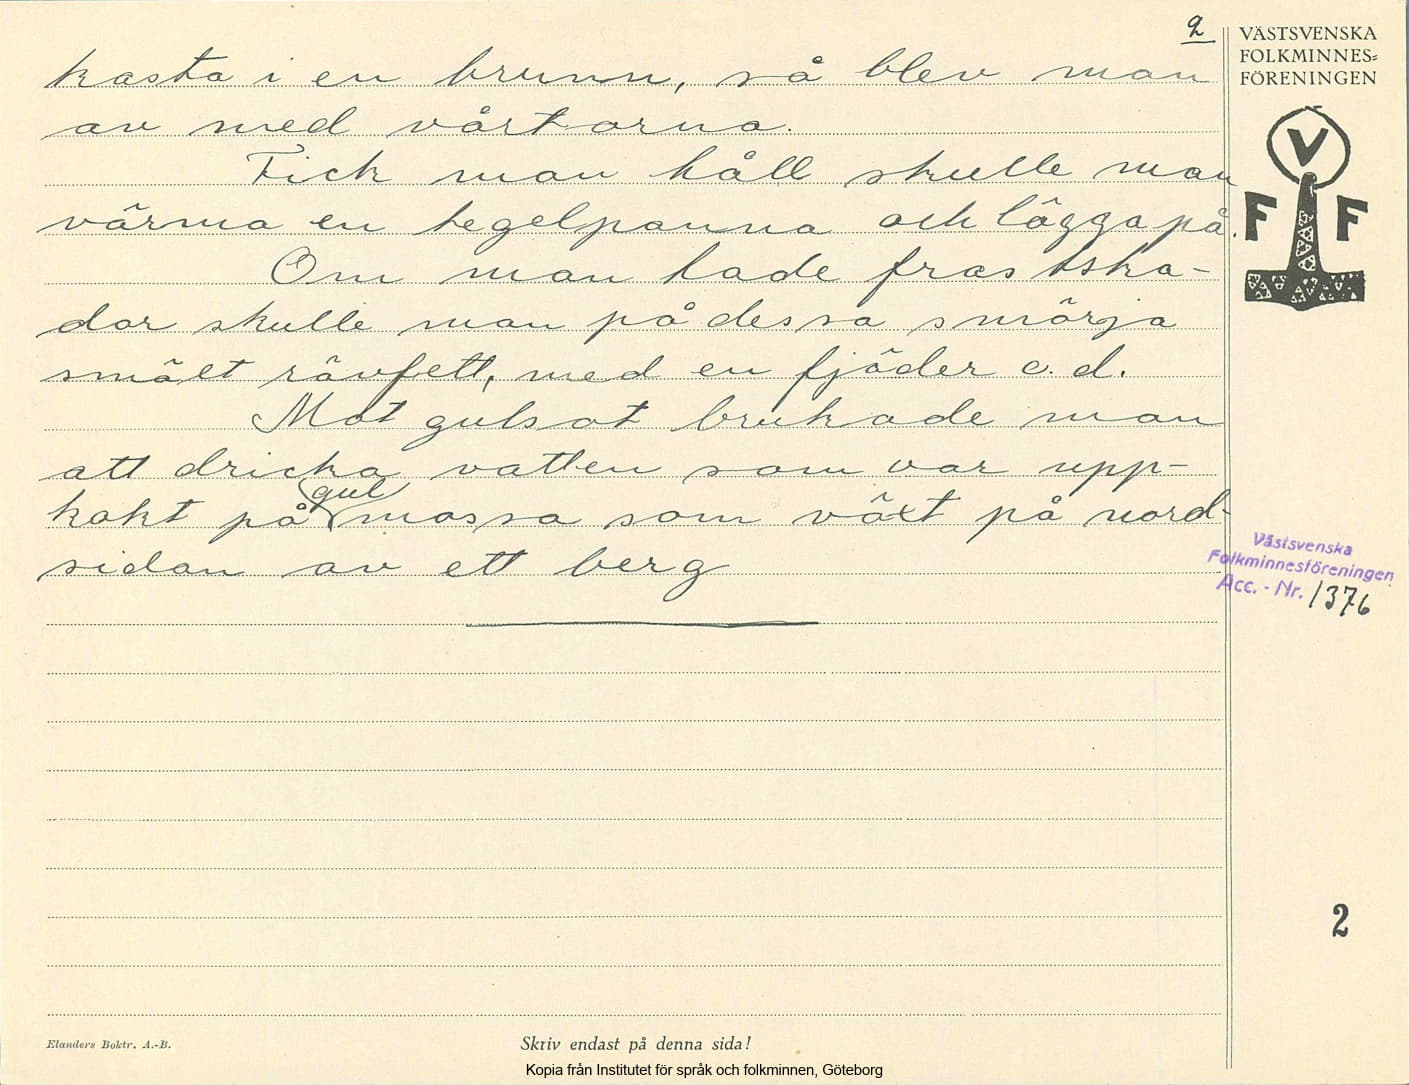 2
kasta i en brunn, så blev man
av med vårtorna.
Fick man håll skulle man
värma en tegelpanna och lägga på.
Om man hade frostska-
dor skulle man på dessa smörja
smält rävfett, med en fjäder e. d.
Mot gulsot brukade man
att dricka vatten som var upp-
kokt på gul mossa som växt på nord-
sidan av ett berg
VÄSTSVENSKA
FOLKMINNES=
FÖRENINGEN
V
F F
Västsvenska
Folkminnesföreningen
Acc. - Nr. 1376
2
Elanders Boktr. A.-B.
Skriv endast på denna sida!
Kopia från Institutet för språk och folkminnen, Göteborg